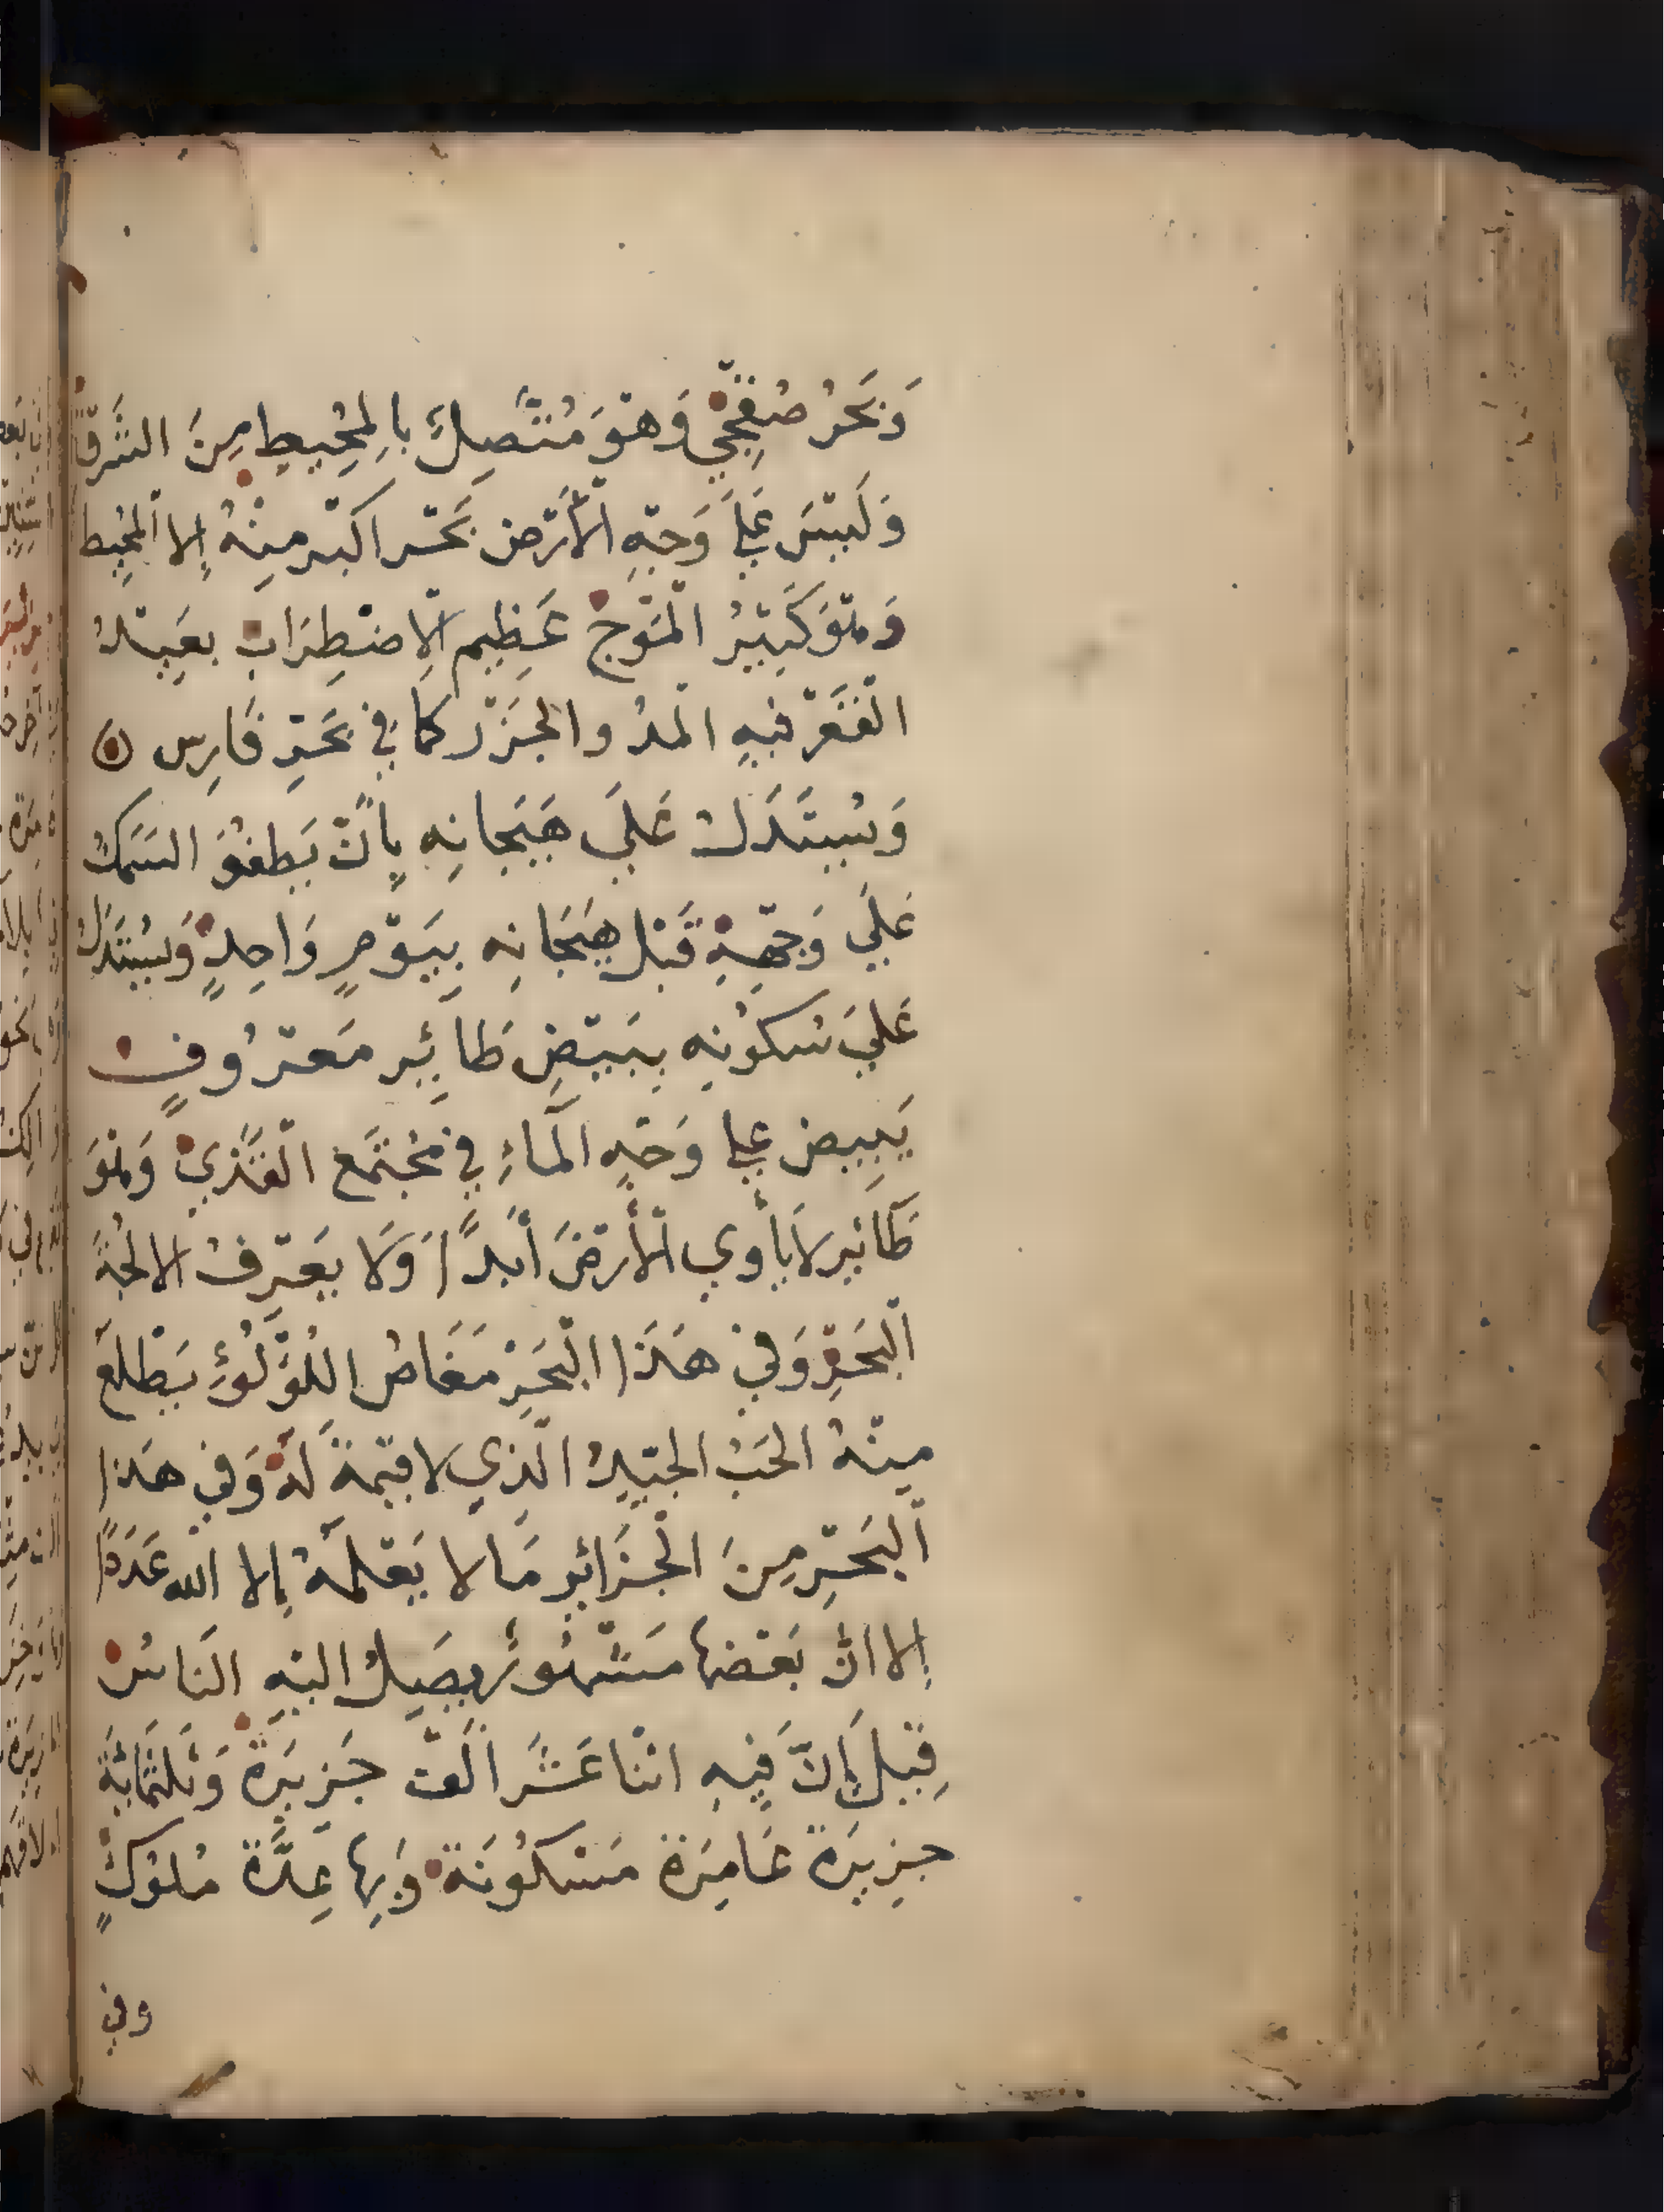 وَبَحْرُ صُنْفِجِّي وَهْوَ مُتَّصِلٌ بِالمُحِيطِ مِنَ الشَّرْقِ
وَلَيْسَ عَلَى وَجْهِ الْأَرْضِ بَحْر اكبر مِنْهُ إِلا الْمُحِيط
وَهْوَ كَثِيرُ الْمَوْجِ عَظِيم الْاِضْطِرَابِ بعَيِدُ
الْقَعْرِ فيهِ الْمدُ والجَزْر كما فِي بَحْرِ فَارِس
وَيُسْتَدَلُ عَلَي هَيَجانِه بِأَنْ يَطفُوَ السَمَكُ
عَلَي وَجْهِهِ قَبْلَ هَيَجَانِه بِيَوْمٍ وَاحِدٍ وَيُسْتَدَلُ
عَلَي سُكُونِه بِبَيْضِ طَائِرٍ مَعْرُوفٍ
يَبِيض علي وَجْهِ الْمَاءِ فِي مُجْتَمَع الْقَذَي وَهْوَ
طَائِر لاَ يأوي الْأَرْضَ أَبَدًا وَلَا يَعْرِفُ الا لُجَّةَ
الْبَحْرِ وَفِي هَذَا الْبَحْرِ مَغَاصُ اللُّؤْلُؤِ يَطْلَعُ
مِنْهُ الحَبُ الجَيّدُ الَّذِي لا قِيْمَةَ لَهُ وَفِي هَذا
الْبَحْرِ مِنَ الْجَزَائِرِ مَا لا يَعْلَمهُ إِلا الله عَدَدًا
إِلا انَّ بَعْضَها مَشْهُورٌ يصَلِ اليهِ النَاسُ
قِيْلَ إِنَّ فِيهِ اثْنا عَشَرَ أَلْف جَزِيرَة وَثلثمَائةَ
جزِيرَة عَامِرَة مَسْكُونَة وَبِها عِدَّة مُلُوكٍ
وفي